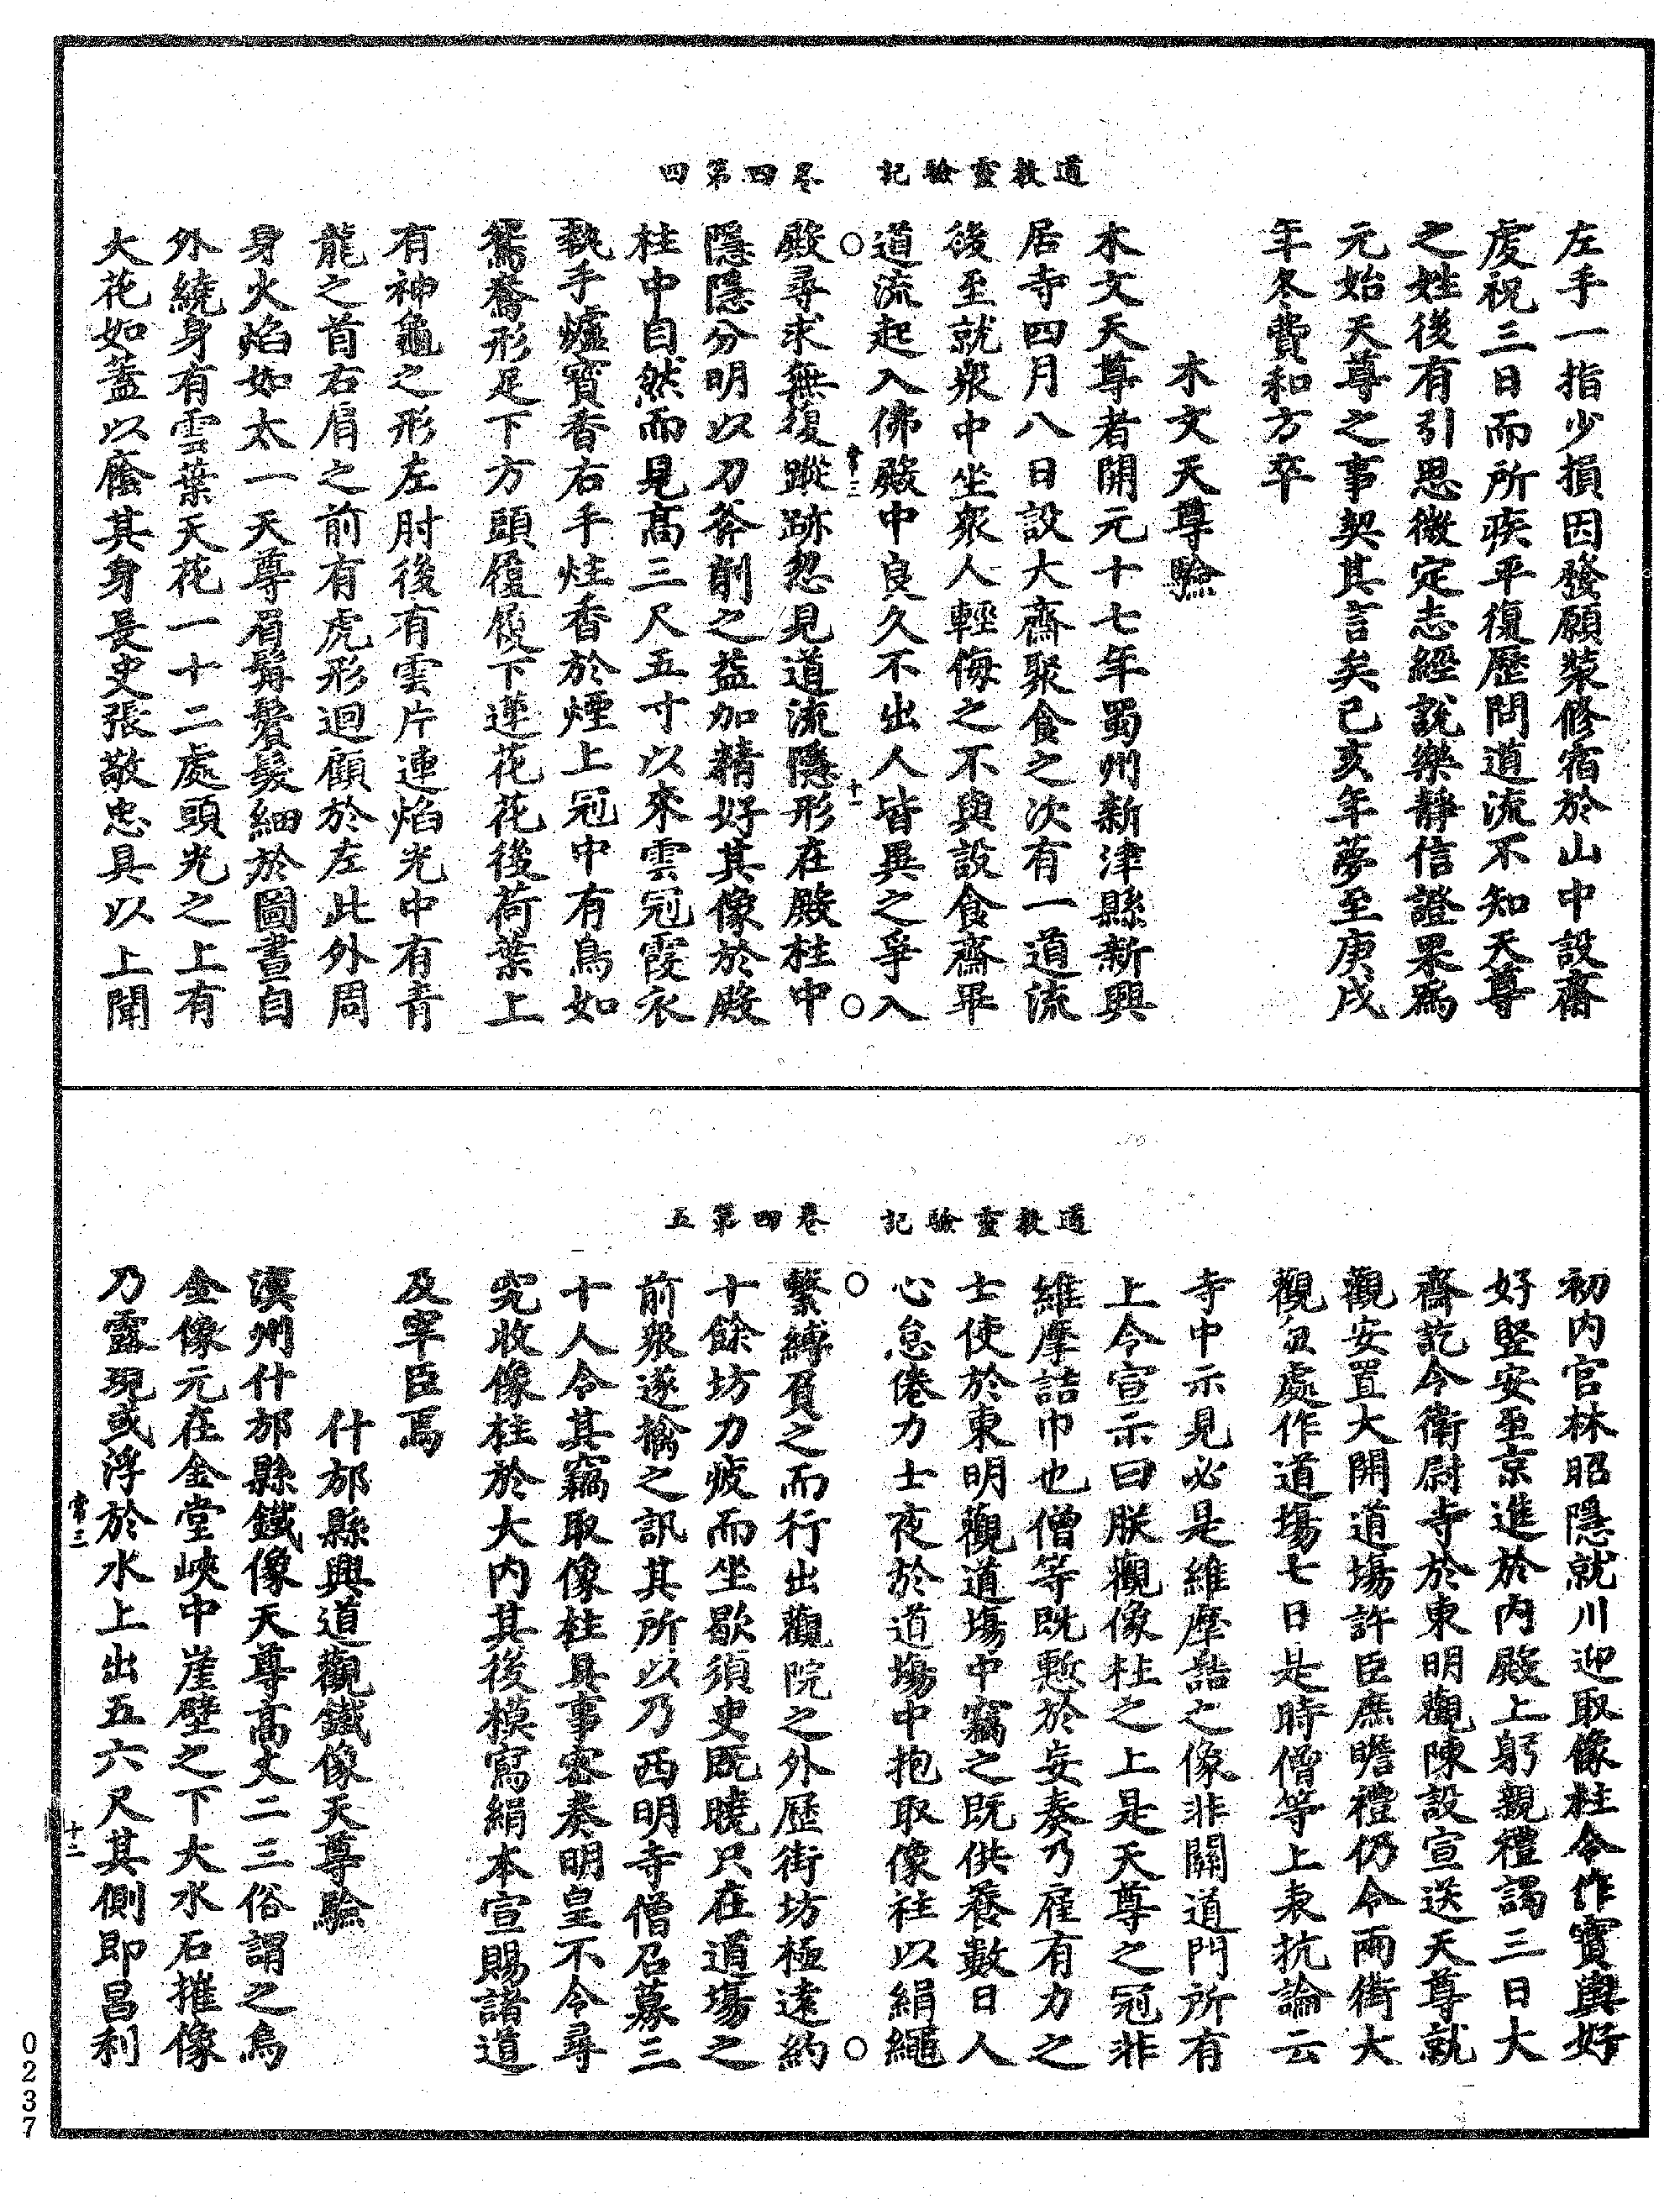 道教靈驗記　卷四第四
左手一指少損因發願裝修宿於山中設齋
虔祝三日而所疾平復歷問道流不知天尊
之姓後有引思微定志經說樂靜信證果為
元始天尊之事契其言矣己亥年夢至庚戌
年冬費和方卒
木文天尊驗
木文天尊者開元十七年蜀州新津縣新興
居寺四月八日設大齋聚食之次有一道流
後至就眾中坐眾人輕侮之不與設食齋畢
道流起入佛殿中良久不出人皆異之爭入
常三　十一
殿尋求無復蹤跡忽見道流隱形在殿柱中
隱隱分明以刀斧削之益加精好其像於殿
柱中自然而見高三尺五寸以來雲冠霞衣
執手爐寶香右手炷香於煙上冠中有鳥如
鴛鴦形足下方頭履履下蓮花花後荷葉上
有神龜之形左肘後有雲片連焰光中有青
龍之首右肩之前有虎形迴顧於左此外周
身火焰如太一天尊眉髯鬢髮細於圖畫自
外繞身有雲葉天花一十二處頭光之上有
大花如蓋以廕其身長史張敬忠具以上聞
道教靈驗記　卷四第五
初內官林昭隱就川迎取像柱令作寶輿好
好堅安至京進於內殿上躬親禮謁三日大
齋訖令衛尉寺於東明觀陳設宣送天尊就
觀安置大開道場許臣庶瞻禮仍令兩街大
觀五處作道場七日是時僧等上表抗論云
寺中示見必是維摩詰之像非關道門所有
上令宣示曰朕觀像柱之上是天尊之冠非
維摩詰巾也僧等既慙於妄奏乃雇有力之
士使於東明觀道場中竊之既供養數日人
心怠倦力士夜於道場中抱取像柱以絹繩
繫縛負之而行出觀院之外歷街坊極遠約
十餘坊力疲而坐歇須臾既曉只在道場之
前眾遂擒之訊其所以乃西明寺僧召募三
十人令其竊取像柱具事密奏明皇不令尋
究收像柱於大內其後模寫絹本宣賜諸道
及宰臣焉
什邡縣興道觀鐵像天尊驗
漢州什邡縣鐵像天尊高丈二三俗謂之烏
金像元在金堂峽中崖壁之下大水石摧像
乃露現或浮於水上出五六尺其側即昌利
常三　十二
0237